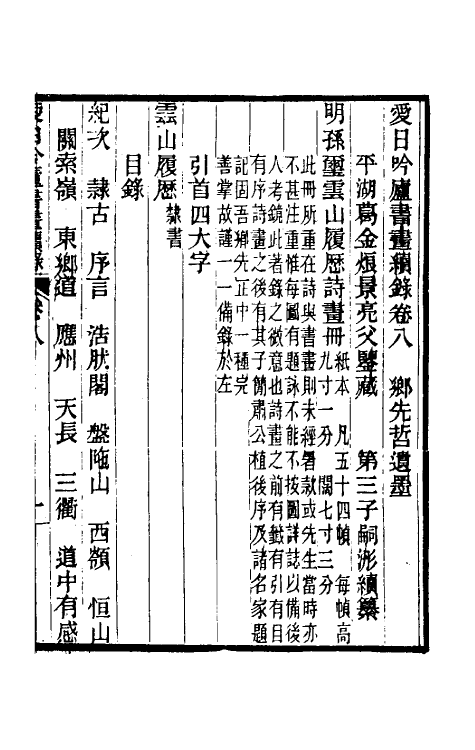 愛日吟廬書畫續錄卷八　鄉先哲遺墨
平湖葛金烺景亮父鑒藏　第三子嗣浵續纂
明孫璽雲山履歷詩畫冊 紙本　凡五十四幀　每幀高九寸一分　闊七寸三分
此冊所重在詩與書畫則未經署款或先生當時亦
不甚注重惟每圖有題詠不能不按圖詳誌以備後
人考鏡此著錄之微意也詩畫之前有籤有引有目
有序詩畫之後有其子簡肅公植後序及諸名家題
記固吾鄉先正中一種完
善掌故謹一一備錄於左
引首四大字
雲山履歷 隸書
目錄
紀次　隸古　序言　浩肰閣　盤陁山　西額　恒山
關索嶺　東鄉道　應州　天長　三衢　道中有感
愛日吟廬書畫續錄 卷八 一